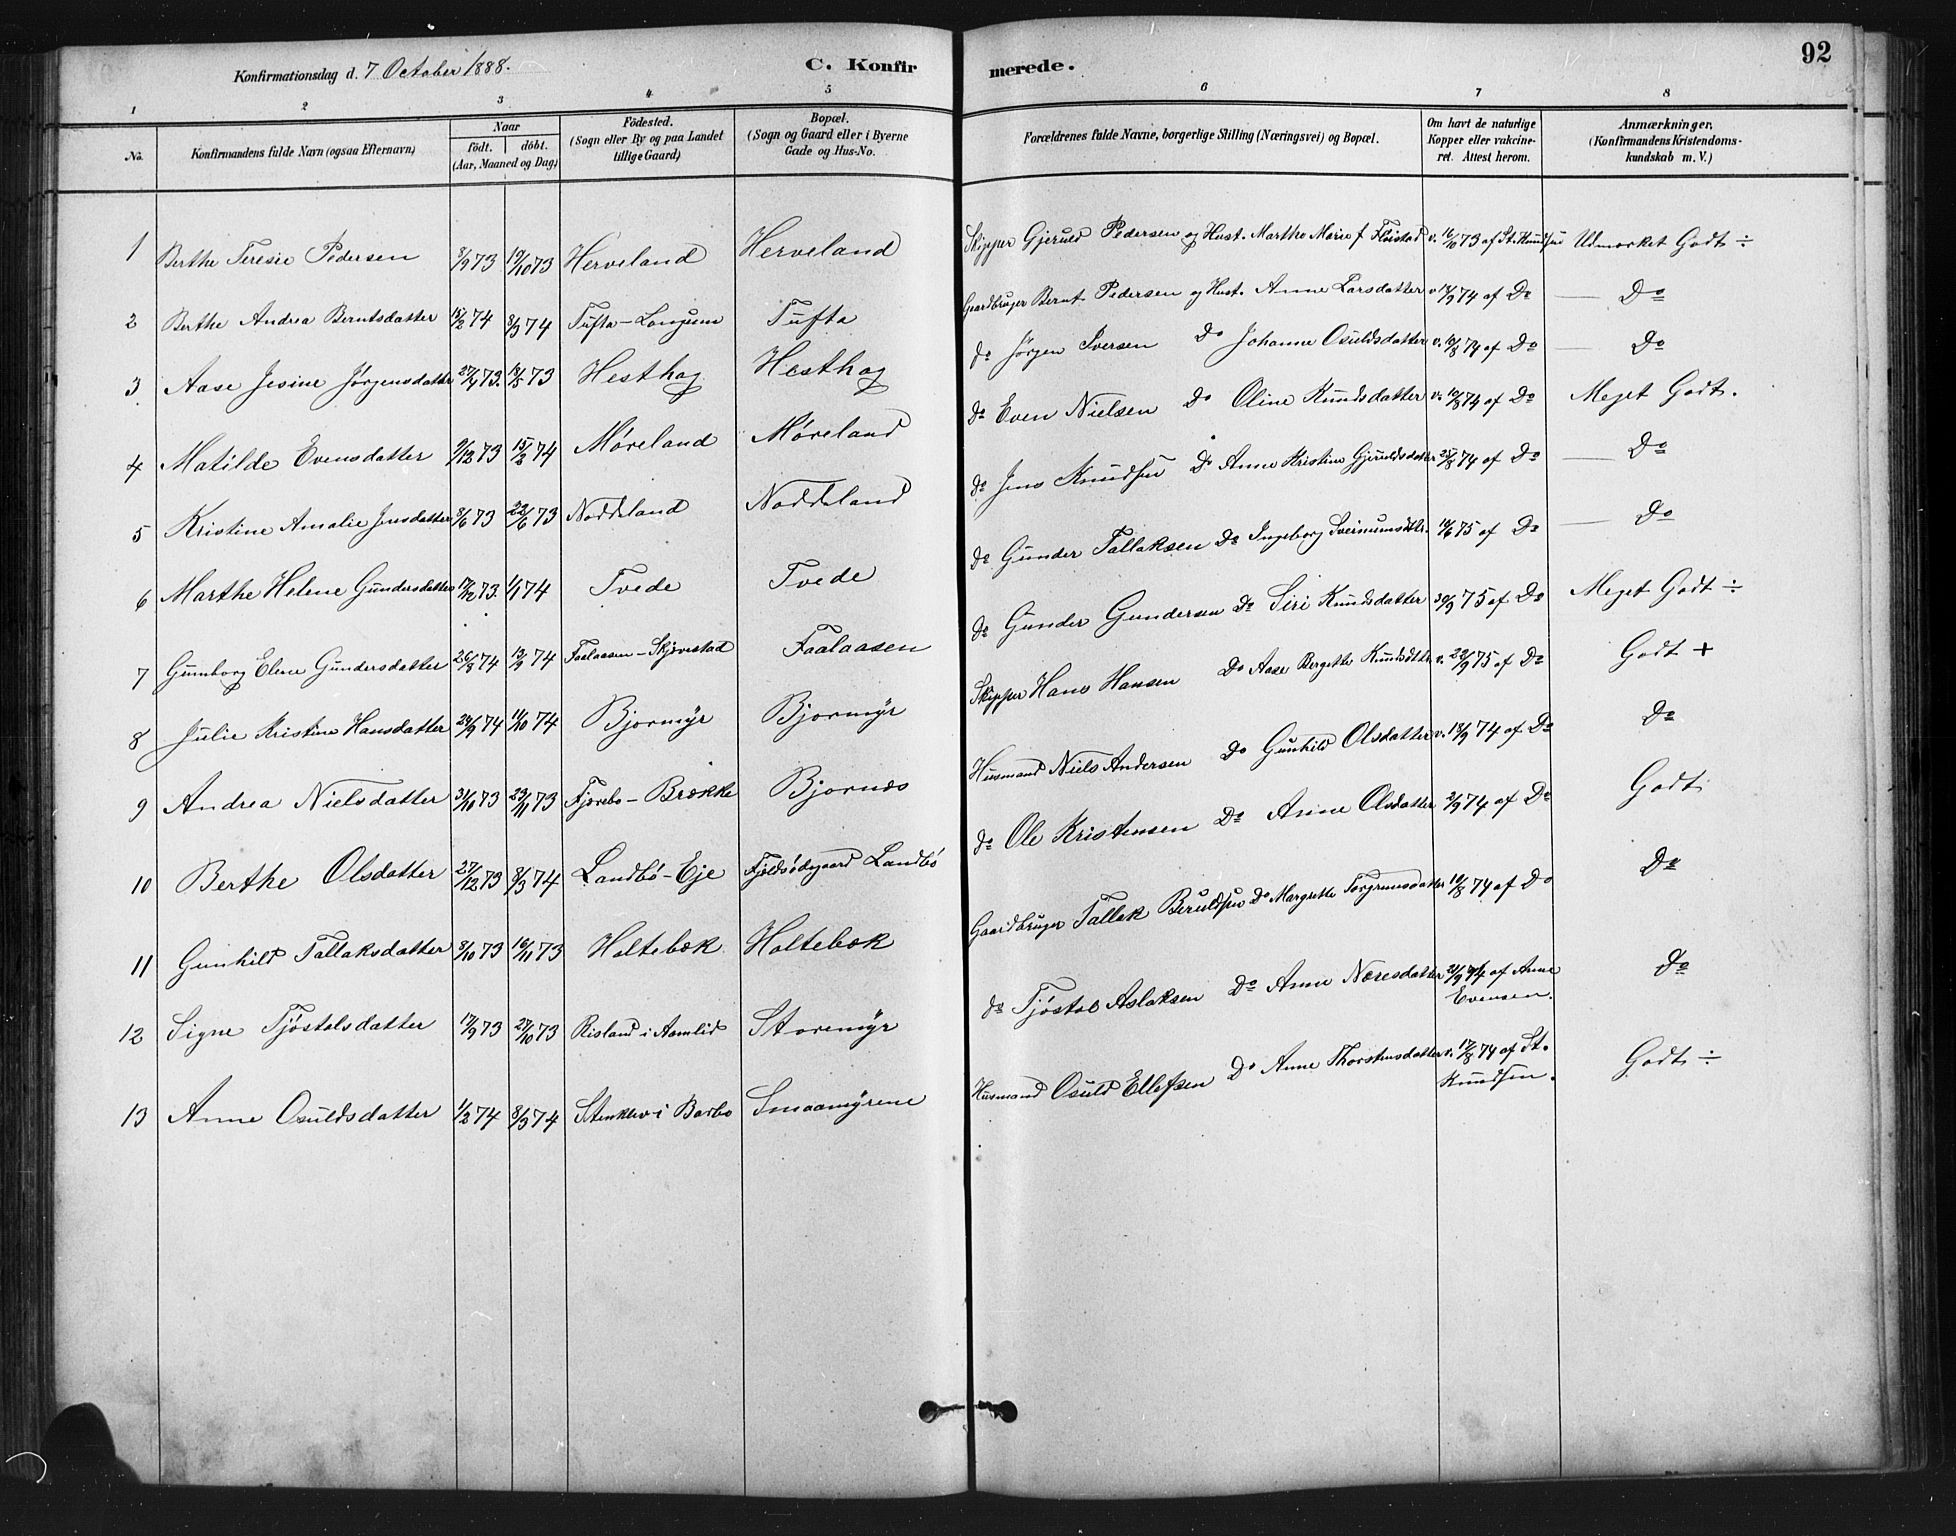 Konfirmationsdag d. 7 October 1888.
C. Konfirmerede.
92
1 2 3 4 5 6 7 8
No.
Konfirmandens fulde Navn (ogsaa Efternavn)
Naar
födt. döbt.
(Aar, Maaned og Dag)
Födested.
(Sogn eller By og paa Landet
tillige Gaard)
Bopæl.
(Sogn og Gaard eller i Byerne
Gade og Hus-No.
Forældrenes fulde Navne, borgerlige Stilling (Næringsvei) og Bopæl.
Om havt de naturlige
Kopper eller vakcine-
ret. Attest herom.
Anmærkninger,
(Konfirmandens Kristendoms-
kundskab m. V.)
1 Berthe Teresie Pedersen 8/9 73 19/10 73 Herveland Herveland Skipper Gjeruld Pedersen og Hust. Marthe Marie f Fløistad v. 16/10 73 af St. Knudsen Udmærket Godt ÷
2 Berthe Andrea Berntsdatter 15/2 74 8/3 74 Tufta - Longum Tufta Gaardbruger Bernt Pedersen og Hust. Anne Larsdatter v 14/9 74 af Do — Do
3 Aase Jesine Jørgensdatter 27/4 73. 18/5 73 Hesthag Hesthag do Jørgen Iversen Do Johanne Osuldsdatter v. 10/8 74 af Do — Do
4 Matilde Evensdatter 9/12 73 15/2 74 Møreland Møreland do Even Nielsen Do Oline Knudsdatter v. 10/8 74 af Do Meget Godt.
5 Kristine Amalie Jensdatter 8/6 73 22/6 73 Noddeland Noddeland do Jens Knudsen Do Anne Kristine Gjeruldsdatter 25/8 74 af Do — Do
6 Marthe Helene Gundersdatter 17/12 73. 1/1 74 Tvede Tvede do Gunder Tallaksen Do Ingeborg Sveinumsdtr. 10/6 75 af Do — Do
7 Gunborg Elene Gundersdatter 26/8 74 13/9 74 Faalaasen - Skjævestad Faalaasen do Gunder Gundersen Do Siri Knudsdatter 30/9 75 af Do Meget Godt ÷
8 Julie Kristine Hansdatter 24/9 74 11/10 74 Bjormyr Bjormyr Skipper Hans Hansen Do Aase Bergette Knudsdttr v. 22/9 75 af Do Godt +
9 Andrea Nielsdatter 31/10 73 23/11 73 Fjærebo - Brække Bjornæs Husmand Niels Andersen Do Gunhild Olsdatter v. 18/9 74 af Do Do
10 Berthe Olsdatter 27/12 73 8/3 74 Landbö - Eje Fjeldsødegaard Landbö do Ole Kristensen Do Anne Olsdatter 2/9 74 af Do Godt
11 Gunhild Tallaksdatter 8/10 73 16/11 73 Holtebæk Holtebæk Gaardbruger Tallak Beruldsen Do Margrette Torgrimsdatter 10/8 74 af Do Do
12 Signe Tjöstolsdatter 17/9 73 27/10 73 Risland i Aamlid Storemyr do Tjöstol Aslaksen Do Anne Næresdatter 21/9 74 af Anne Evensen. Do
13 Anne Osuldsdatter 1/2 74 8/3 74 Stenklev i Barbo Smaamyrene Husmand Osuld Ellefsen Do Anne Thorstensdatter v. 17/8 74 af St. Knudsen. Godt ÷